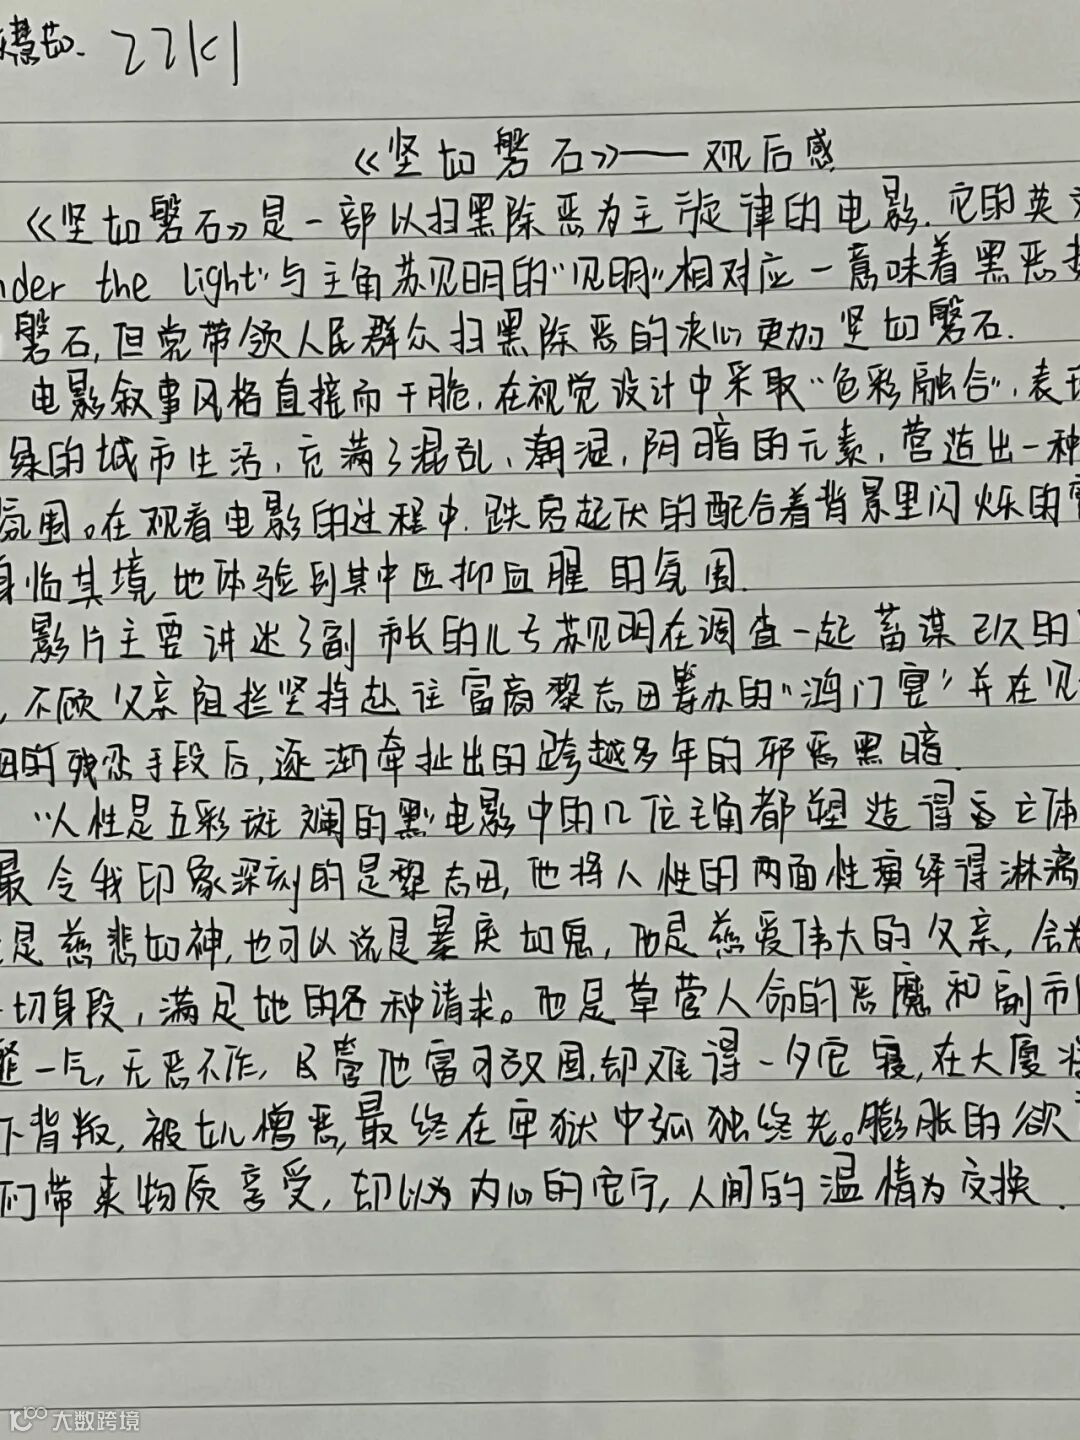 慧茹. 22K1
《坚如磐石》——观后感
《坚如磐石》是一部以扫黑除恶为主旋律的电影.它的英
nder the light"与主角苏见明的"见明"相对应一意味着黑恶
磐石,但党带领人民群众扫黑除恶的决心更加坚如磐石.
电影叙事风格直接而干脆,在视觉设计中采取"色彩融合",表
绿的城市生活,充满了混乱、潮湿,阴暗的元素,营造出一种
氛围。在观看电影的过程中,跌宕起伏的配合着背景里闪烁的
身临其境地体验到其中压抑血腥的氛围.
影片主要讲述了副市长的儿子苏见明在调查一起蓄谋已久的
,不顾父亲阻拦坚持赴往富商黎志田筹办的"鸿门宴"并在见
田的残忍手段后,逐渐牵扯出的跨越多年的邪恶黑暗.
"人性是五彩斑斓的黑"电影中的几位主角都塑造得立体
最令我印象深刻的是黎志田,他将人性的两面性演绎得淋漓
是慈悲如神,也可以说是暴戾如鬼,他是慈爱伟大的父亲,会
切身段,满足她的各种请求。他是草菅人命的恶魔和副市
一气,无恶不作,尽管他富可敌国,却难得一夕安寝,在大厦
下背叛,被女儿憎恶,最终在牢狱中孤独终老。膨胀的欲
们带来物质享受,却以为内心的安宁,人间的温情为交换.
大数跨境